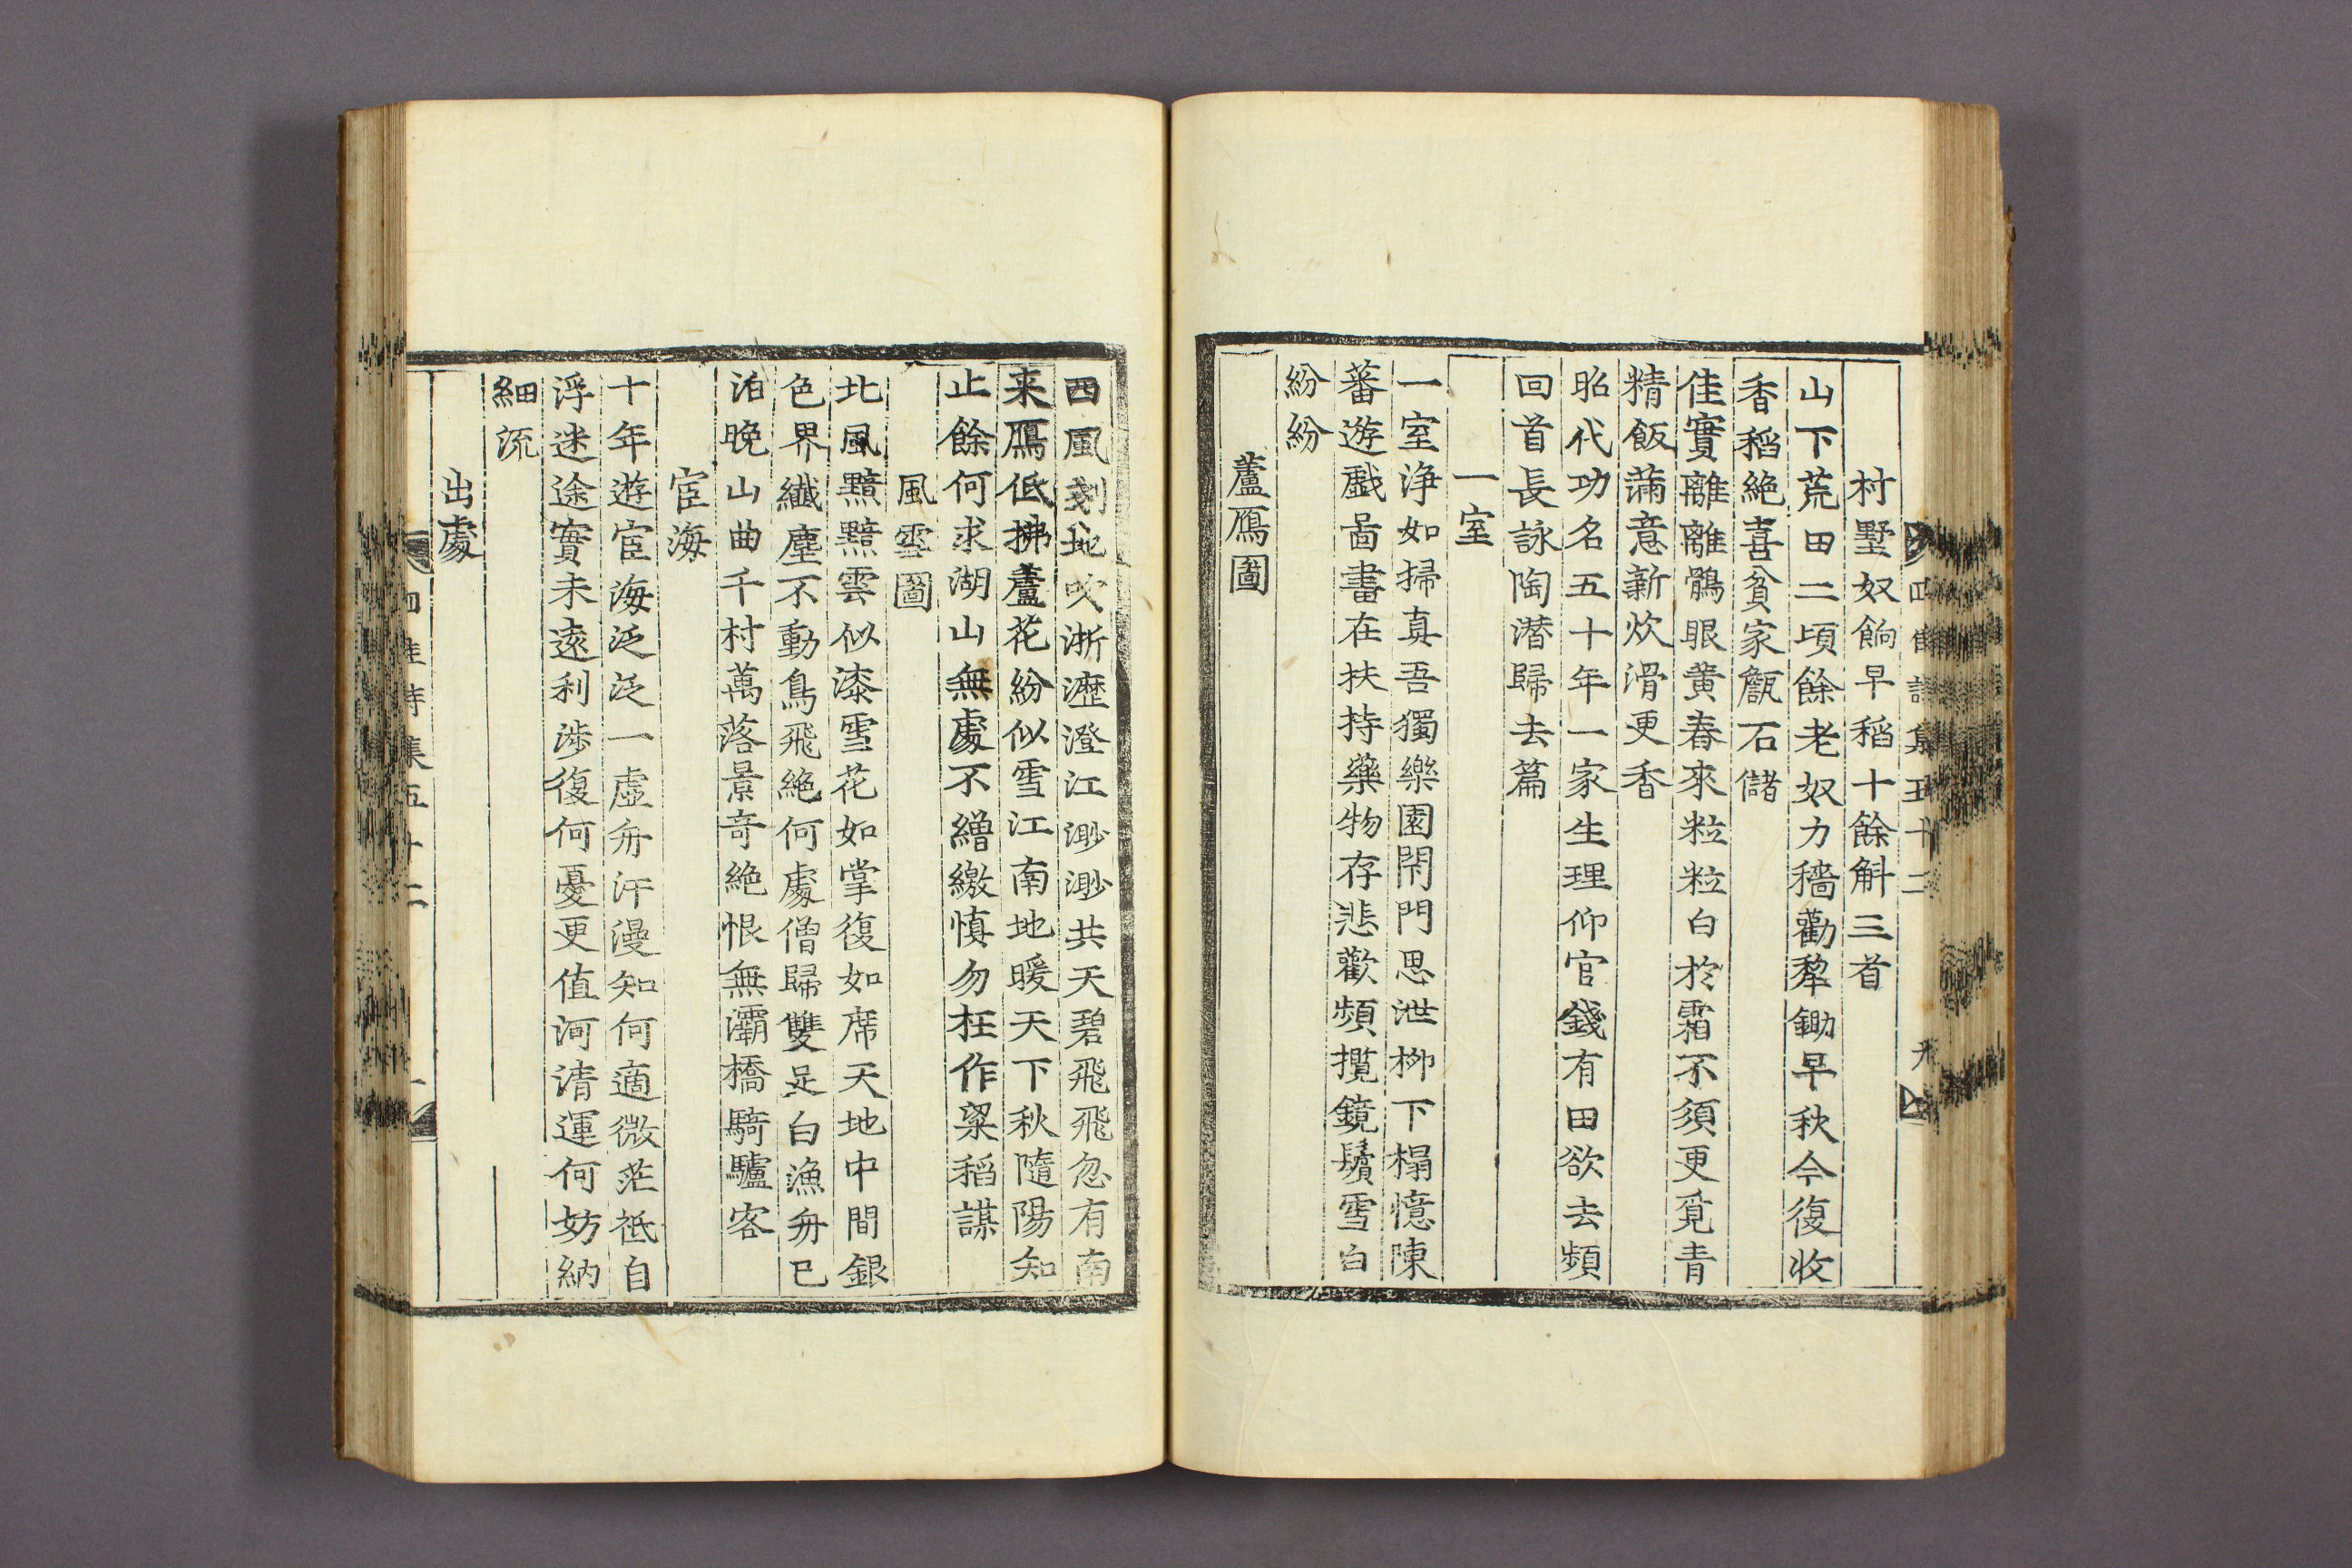 四佳詩集五十二
村墅奴餉早稻十餘斛三首
山下荒田二頃餘老奴力穡勸犂鋤早秋今復收
香稻絶喜貧家甔石儲
佳實離離鶻眼黄舂來粒粒白於霜不須更覓青
精飯滿意新炊滑更香
昭代功名五十年一家生理仰官錢有田欲去頻
回首長詠陶潜歸去篇
一室
一室浄如掃真吾獨樂園閇門思泄柳下榻憶陳
蕃遊戲啚書在扶持藥物存悲歡頻攬鏡鬢雪白
紛紛
蘆鴈圖
西風刻地吹淅瀝澄江渺渺共天碧飛飛忽有南
来鴈低拂蘆花紛似雪江南地暖天下秋隨陽知
止餘何求湖山無處不繒繳慎勿枉作粱稻謀
風雪圖
北風黯黯雲似漆雪花如掌復如席天地中間銀
色界纖塵不動鳥飛絶何處僧歸雙足白漁舟已
泊晚山曲千村萬落景奇絶恨無灞橋騎驢客
宦海
十年遊宦海泛泛一虛舟汗漫知何適微茫祗自
浮迷途實未遠利涉復何憂更值河清運何妨納
細流
出處
四佳詩集五十二